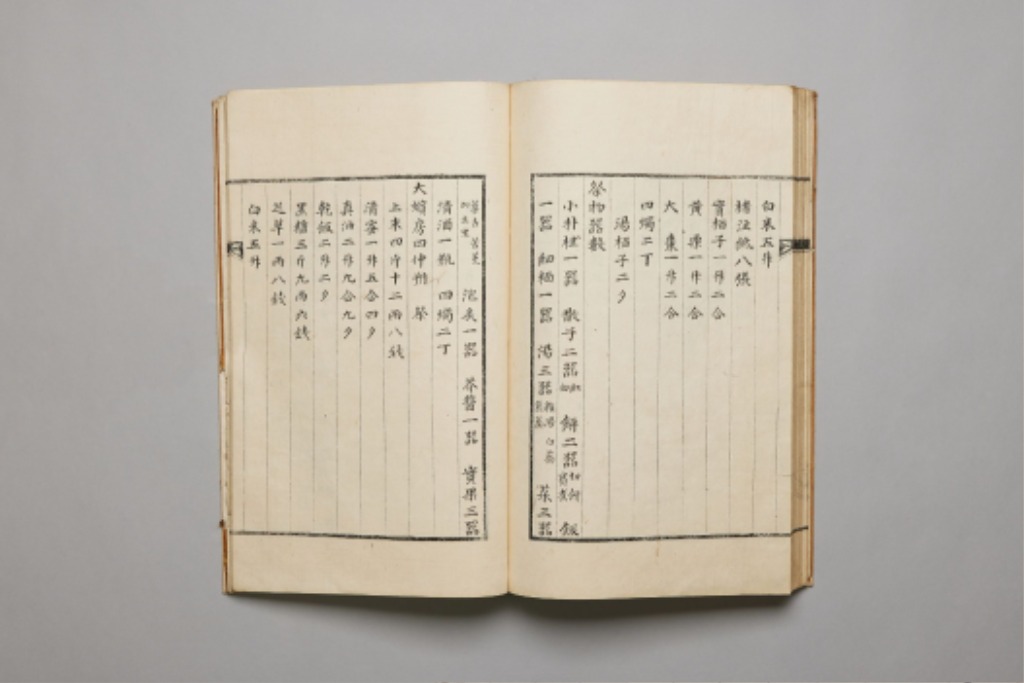 白米五升
楮注紙八張
實栢子一升二合
黃栗一升二合
大棗一升二合
四燭二丁
湯栢子二夕
祭物器數
小朴桂一器 散子二器 餠二器 飯
一器 麵一器 湯三器 菜三器
泡炙一器 芥醬一器 實果三器
淸酒一甁 四燭二丁
大嬪房四仲朔祭
上末四斤十二兩八戔
淸蜜一升五合四夕
眞油二升九合九夕
乾飯二升二夕
黑糖三斤九兩六戔
芝草一兩八戔
白米五升